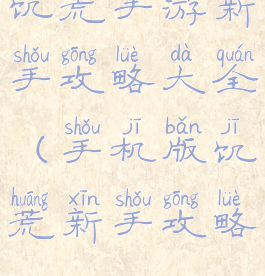 饥荒手游新
shǒu gōng lüè dà quán
手攻略大全
shǒu jī bǎn jī
（手机版饥
huāng xīn shǒu gōng lüè
荒新手攻略